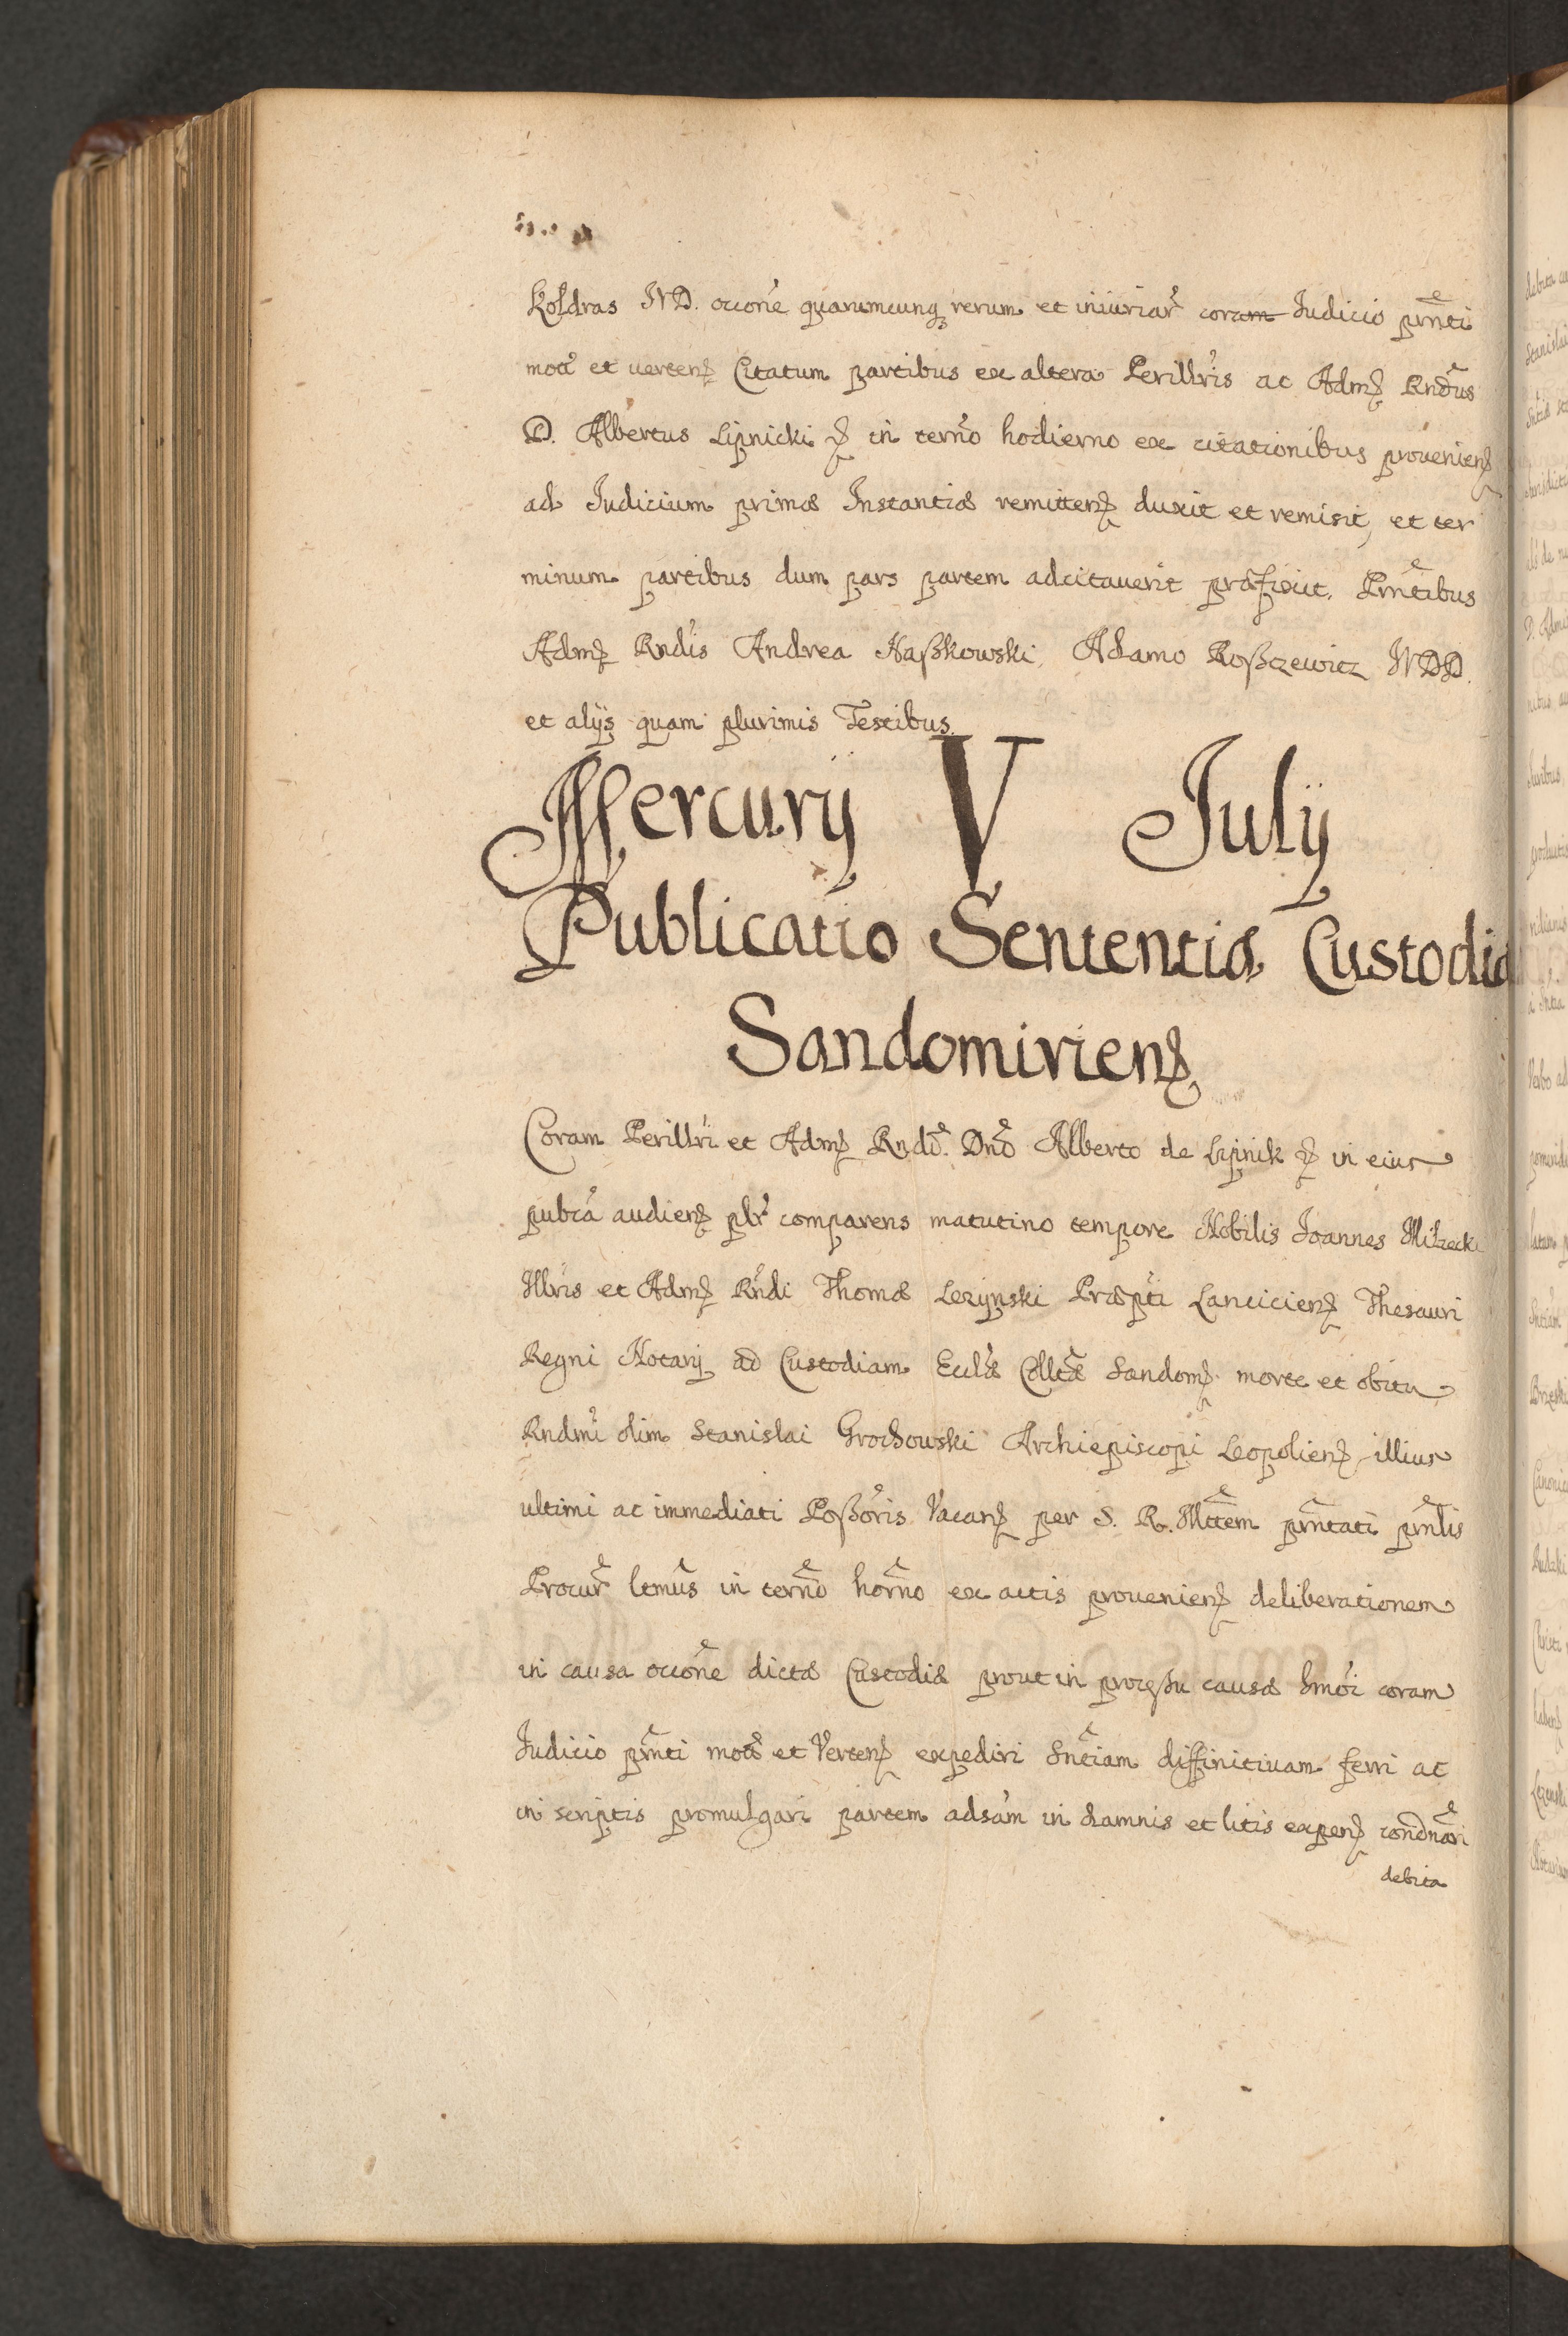 Koldras IVD. occone quarumcunq rerum et iniuriar coram Iudicio prnti
mota et uerten Citatum partibus ex altera Perillris ac Adm Rndus
D. Albertus Lipnicki in termo hodierno ex citationibus prouenien
ad Iudicium primæ Instantiæ remitten duxit et remisit, et ter
minum partibus dum pars partem adcitauerit præfixit. Prntibus
Adm Rndis Andrea Naßkowski, Adamo Roßczewicz IVDD.
et alijs quam plurimis Testibus.
Mercurij V Julij
Publicatio Sententiæ Custodiæ
Sandomirien
Coram Perillri et Adm Rndo. Dno Alberto de Lipnik in eius
pubca audien plr comparens matutino tempore Nobilis Joannes
Illris et Adm Rndi Thomæ Lezynski Præpti Lancicien Thesauri
Regni Notarij ad Custodiam Eccliæ Colltæ Sandom morte et obitu
Rndmi olim Stanislai Grochowski Archiepiscopi Leopolien illius
ultimi ac immediati Poßoris Vacan per S. R. Mttem prntati prnlis
Procur ltmus in termo horno ex actis prouenien deliberationem
in causa occone dictæ Custodiæ prout in proceßu causæ hmoi coram
Iudicio prnti mota et Verten expediri Sntiam diffinitiuam ferri ac
in scriptis promulgari partem adsam in damnis et litis expen condnari
debita